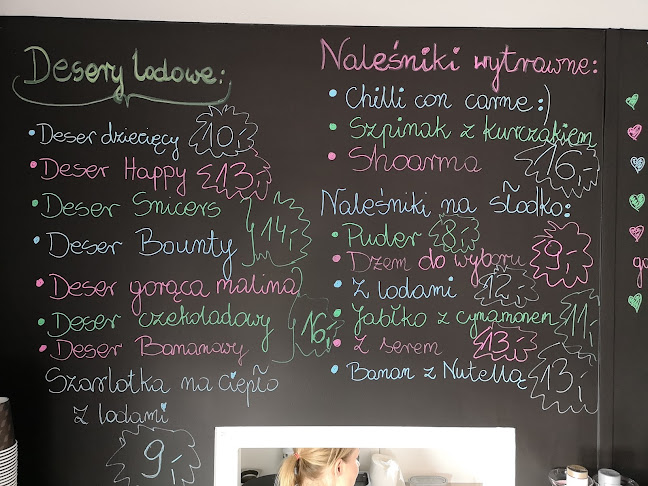 Desery lodowe:
• Deser dziecięcy 10,-
• Deser Happy 13,-
• Deser Snicers
• Deser Bounty 14,-
• Deser gorąca malina
• Deser czekoladowy 16,-
• Deser Bananowy
Szarlotka na ciepło
z lodami
9,-
Naleśniki wytrawne:
• Chilli con carne :)
• Szpinak z kurczakiem
• Shoarma 16,-
Naleśniki na słodko:
• Puder 8,-
• Dżem do wyboru 9,-
• Z lodami 12,-
• Jabłko z cynamonem 11,-
• Z serem 13,-
• Banan z Nutellą 13,-